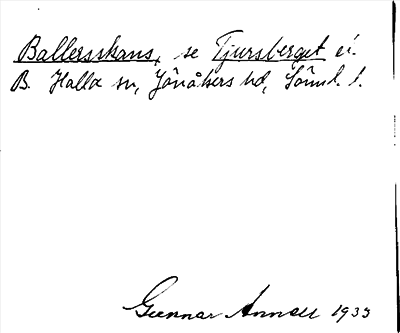 Ballersskans, se Tjursberget i
B. Halla sn, Jönåkers hd, Sörml. l.
Gunnar Annell 1933